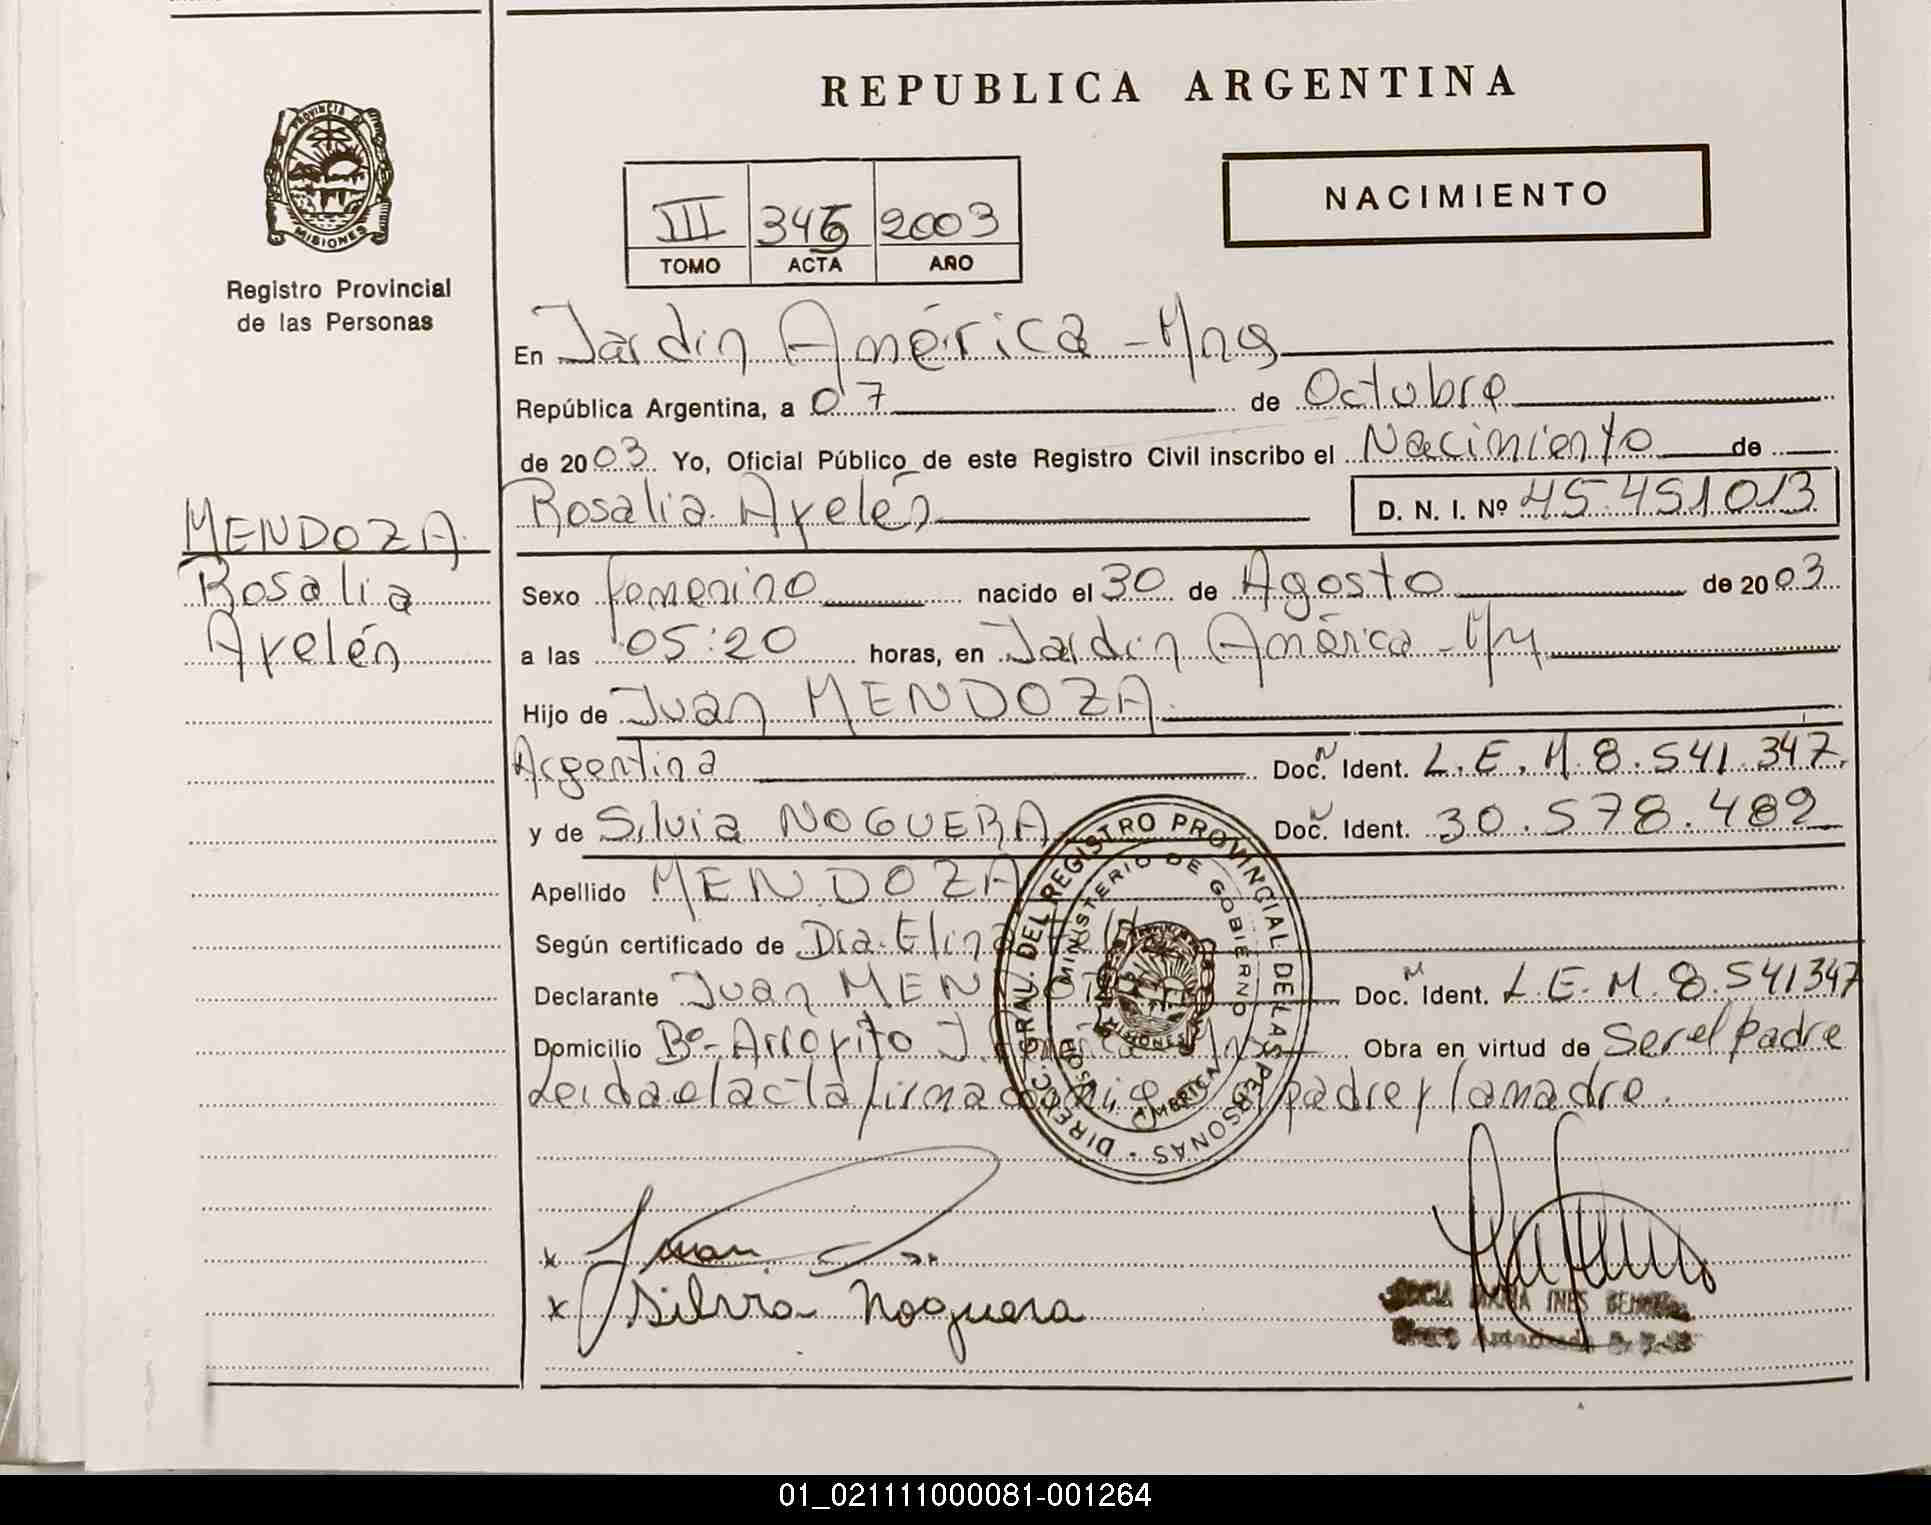 REPUBLICA ARGENTINA
PROVINCIA DE
MISIONES
Registro Provincial
de las Personas
NACIMIENTO
III 346 2003
TOMO ACTA AÑO
En Jardin América - Mns
República Argentina, a 07 de Octubre
de 2003 Yo, Oficial Público de este Registro Civil inscribo el Nacimiento de
Rosalia Ayelén D. N. I. Nº 45.451.013
MENDOZA
Rosalia
Ayelén
Sexo femenino nacido el 30 de Agosto de 2003
a las 05:20 horas, en Jardin América -
Hijo de Juan MENDOZA
Argentina Doc. Ident. L.E.M. 8.541.347
y de Silvia NOGUERA Doc. Ident. 30.578.482
Apellido MENDOZA
Según certificado de Dra. Elina
Declarante Juan MENDOZA Doc. Ident. L.E.M. 8.541347
Domicilio Bº- Arroyito J. América Obra en virtud de Ser el padre
Leida el acta firma conmigo el padre y la madre.
DIREC. GRAL. DEL REGISTRO PROVINCIAL DE LAS PERSONAS
MINISTERIO DE GOBIERNO
AMERICA
MISIONES
x Juan
x Silvia Noguera
MARIA INES
01_021111000081-001264